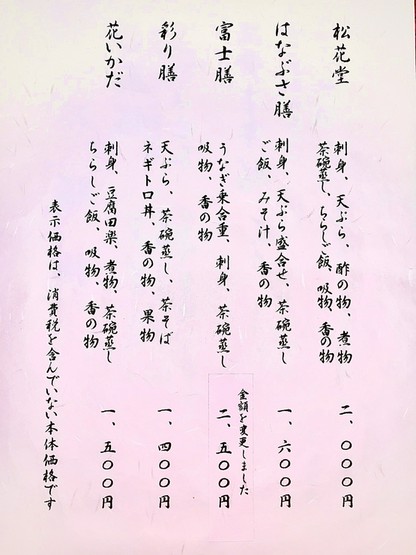 松花堂
刺身、天ぷら、酢の物、煮物
茶碗蒸し、ちらしご飯、吸物、香の物
二、〇〇〇円
はなぶさ膳
刺身、天ぷら盛合せ、茶碗蒸し
ご飯、みそ汁、香の物
一、六〇〇円
富士膳
うなぎ乗合重、刺身、茶碗蒸し
吸物、香の物
金額を変更しました
二、五〇〇円
彩り膳
天ぷら、茶碗蒸し、茶そば
ネギトロ丼、香の物、果物
一、四〇〇円
花いかだ
刺身、豆腐田楽、煮物、茶碗蒸し
ちらしご飯、吸物、香の物
一、五〇〇円
表示価格は、消費税を含んでいない本体価格です